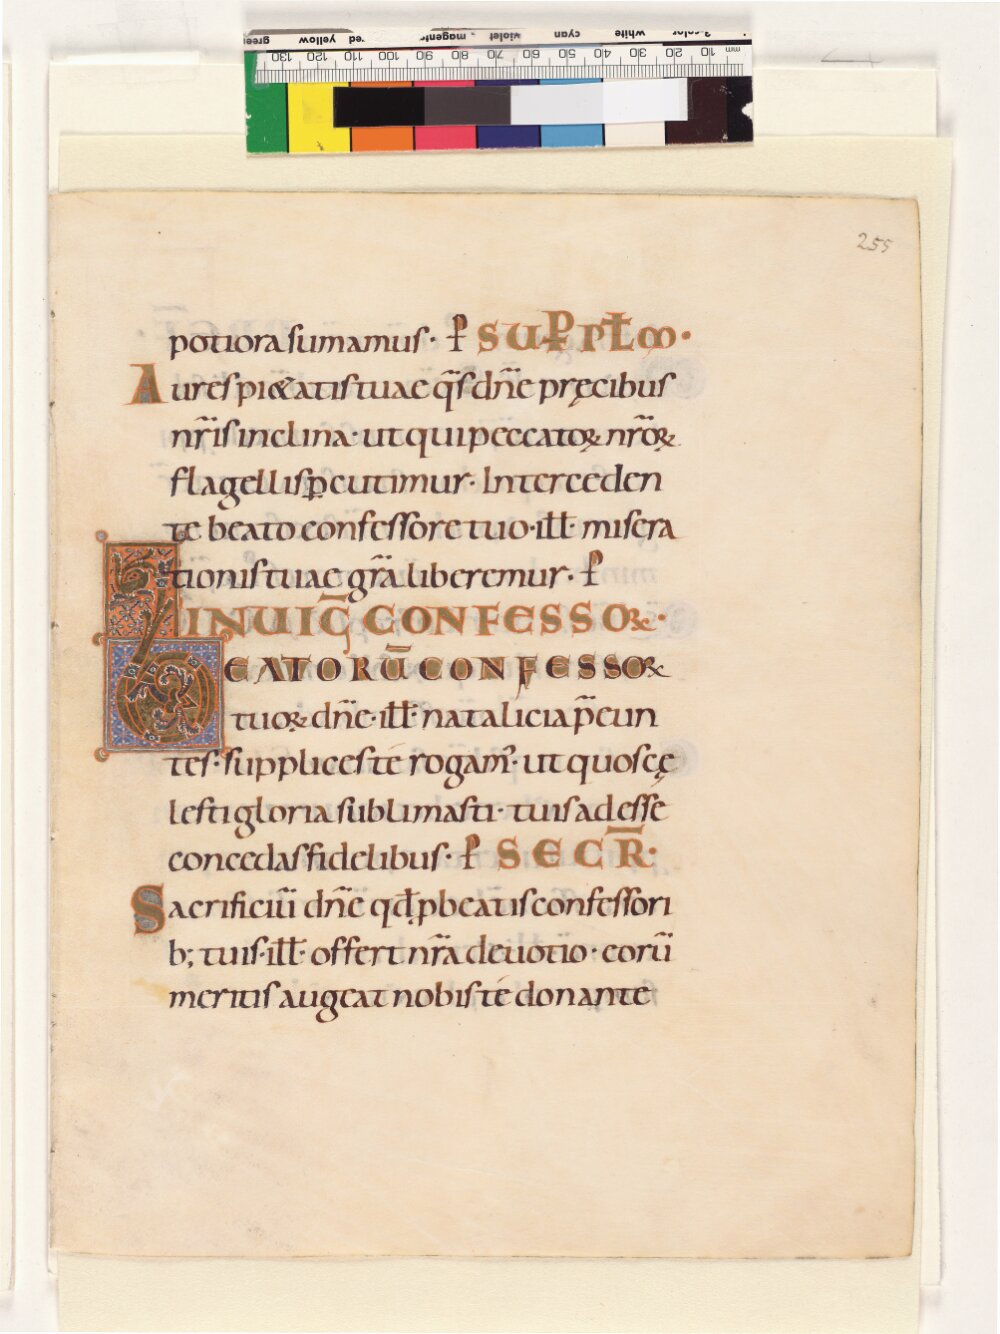 green yellow red magenta violet cyan white 3-color
130 120 110 100 90 80 70 60 50 40 30 20 10 mm
255
potiora sumamus· ꝑ SUꝐ PP̄Ł̄M·
Aures pi&atis tuae q̄s dn̄e pręcibus
nr̄is inclina· ut qui peccatoꝝ nr̄oꝝ
flagellis ꝑcutimur· Interceden
te beato confessore tuo· ill̄· misera
tionis tuae gr̄a liberemur· ꝑ
IN UIĠ CONFESSOꝝ·
BEATORŪ CONFESSOꝝ
tuoꝝ dn̄e· ill̄· natalicia p̄eun
tes· supplices té rogam᾽· ut quos cę
lesti gloria sublimasti· tuis adesse
concedas fidelibus· ꝑ SECR̄·
Sacrificiū dn̄e qđ ꝓ beatis confessori
b; tuis· ill̄· offert nr̄a deuotio· eorū
meritis augeat nobis té donante